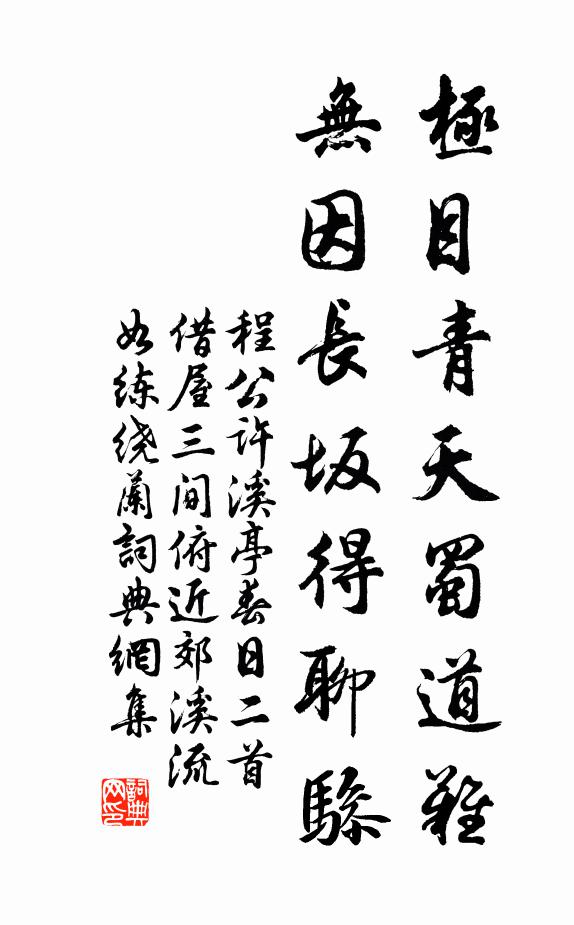 極目青天蜀道難
無因長坂得聊驂
程公許溪亭春日二首
借屋三間俯近郊溪流
如练绕蘭詞典網集
詞典網印